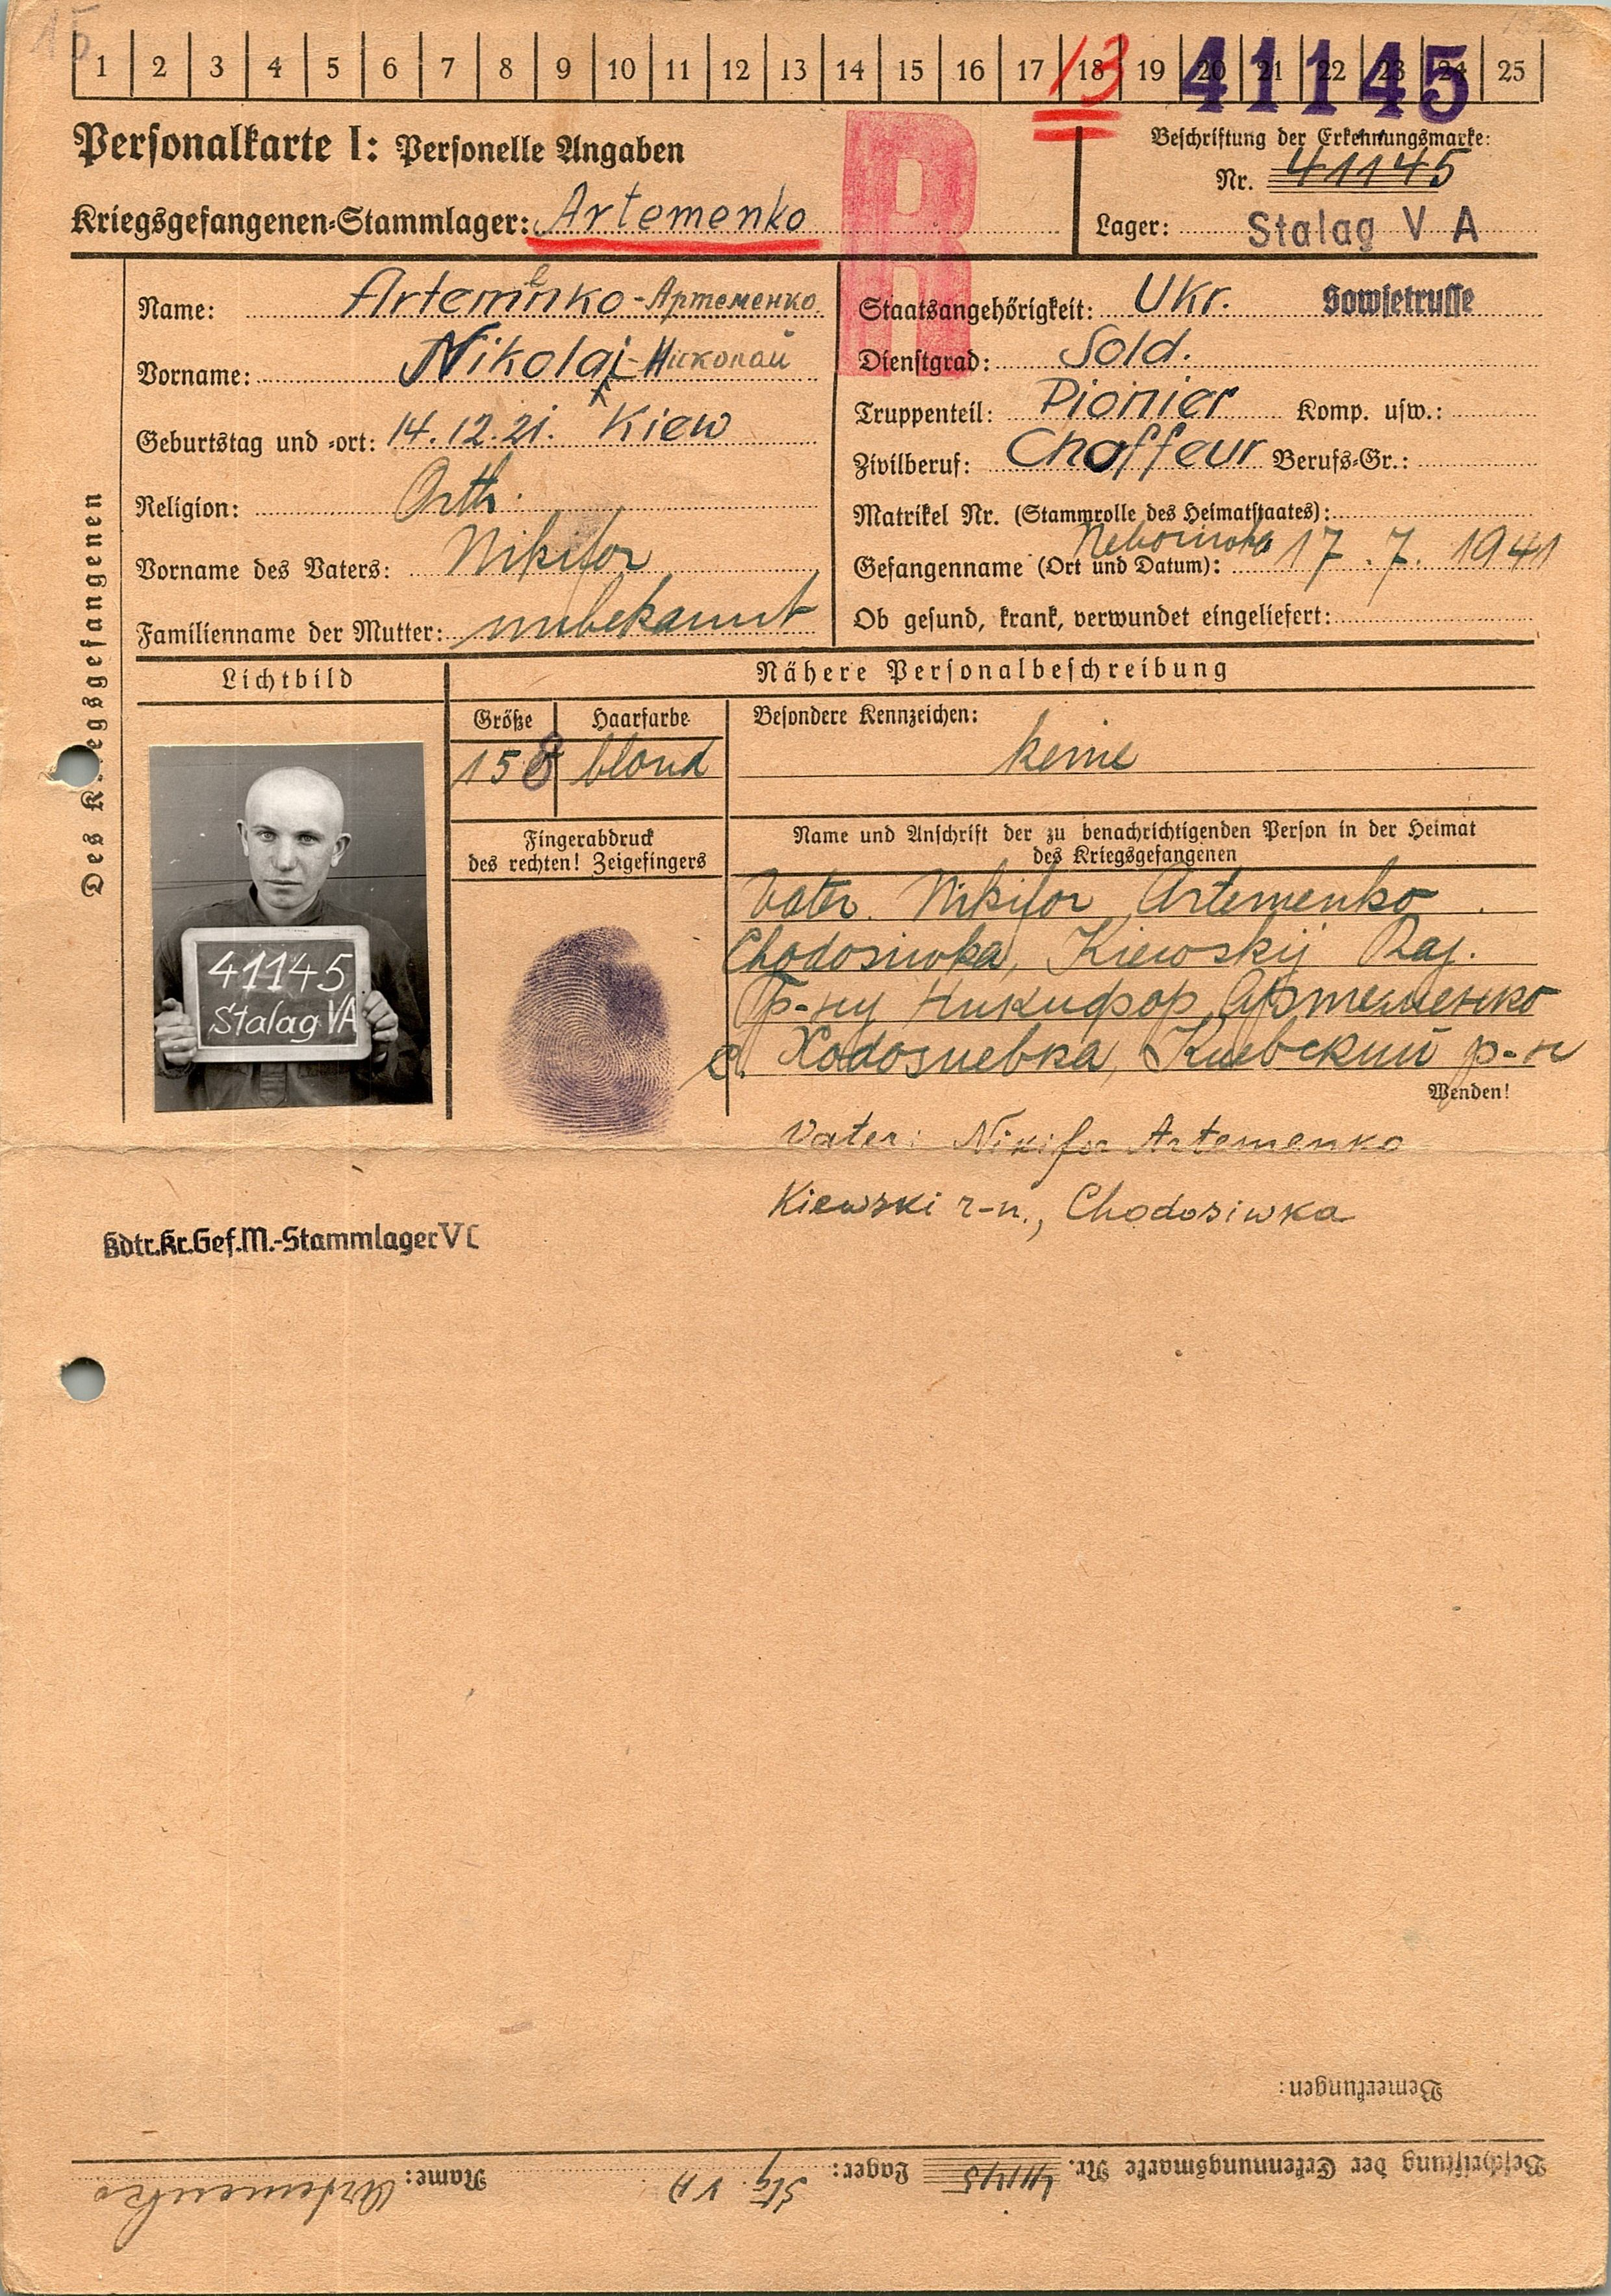 15
1 2 3 4 5 6 7 8 9 10 11 12 13 14 15 16 17 18 19 20 21 22 23 24 25
13
41145
Personalkarte I: Personelle Angaben
Beschriftung der Erkennungsmarke:
Nr. 41145
Kriegsgefangenen-Stammlager: Artemenko
Lager: Stalag V A
R
Des Kriegsgefangenen
Name: Artemenko - Артеменко.
Vorname: Nikolai - Николай
Geburtstag und -ort: 14.12.21. Kiew
Religion: Orth.
Vorname des Vaters: Nikifor
Familienname der Mutter: unbekannt
Staatsangehörigkeit: Ukr. Sowjetrusse
Dienstgrad: Sold.
Truppenteil: Pionier Komp. usw.:
Zivilberuf: Choffeur Berufs-Gr.:
Matrikel Nr. (Stammrolle des Heimatstaates):
Gefangenname (Ort und Datum): 17.7.1941
Ob gesund, krank, verwundet eingeliefert:
Lichtbild
Nähere Personalbeschreibung
Größe
Haarfarbe
Besondere Kennzeichen:
158
blond
keine
Fingerabdruck
des rechten! Zeigefingers
Name und Anschrift der zu benachrichtigenden Person in der Heimat
des Kriegsgefangenen
41145
Stalag VA
Vater Nikifor Artemenko
Chodosiwka, Kiewskij Raj.
Гр-ну Никифор Артеменко
с. Ходосиевка, Киевский р-н
Wenden!
Vater: Nikifor Artemenko
Kiewski r-n., Chodosiwka
Kdtr.Kr.Gef.M.-Stammlager V C
Bemerkungen:
Name: Artemenko
Lager: Stlg. V A
Beschriftung der Erkennungsmarke Nr. 41145